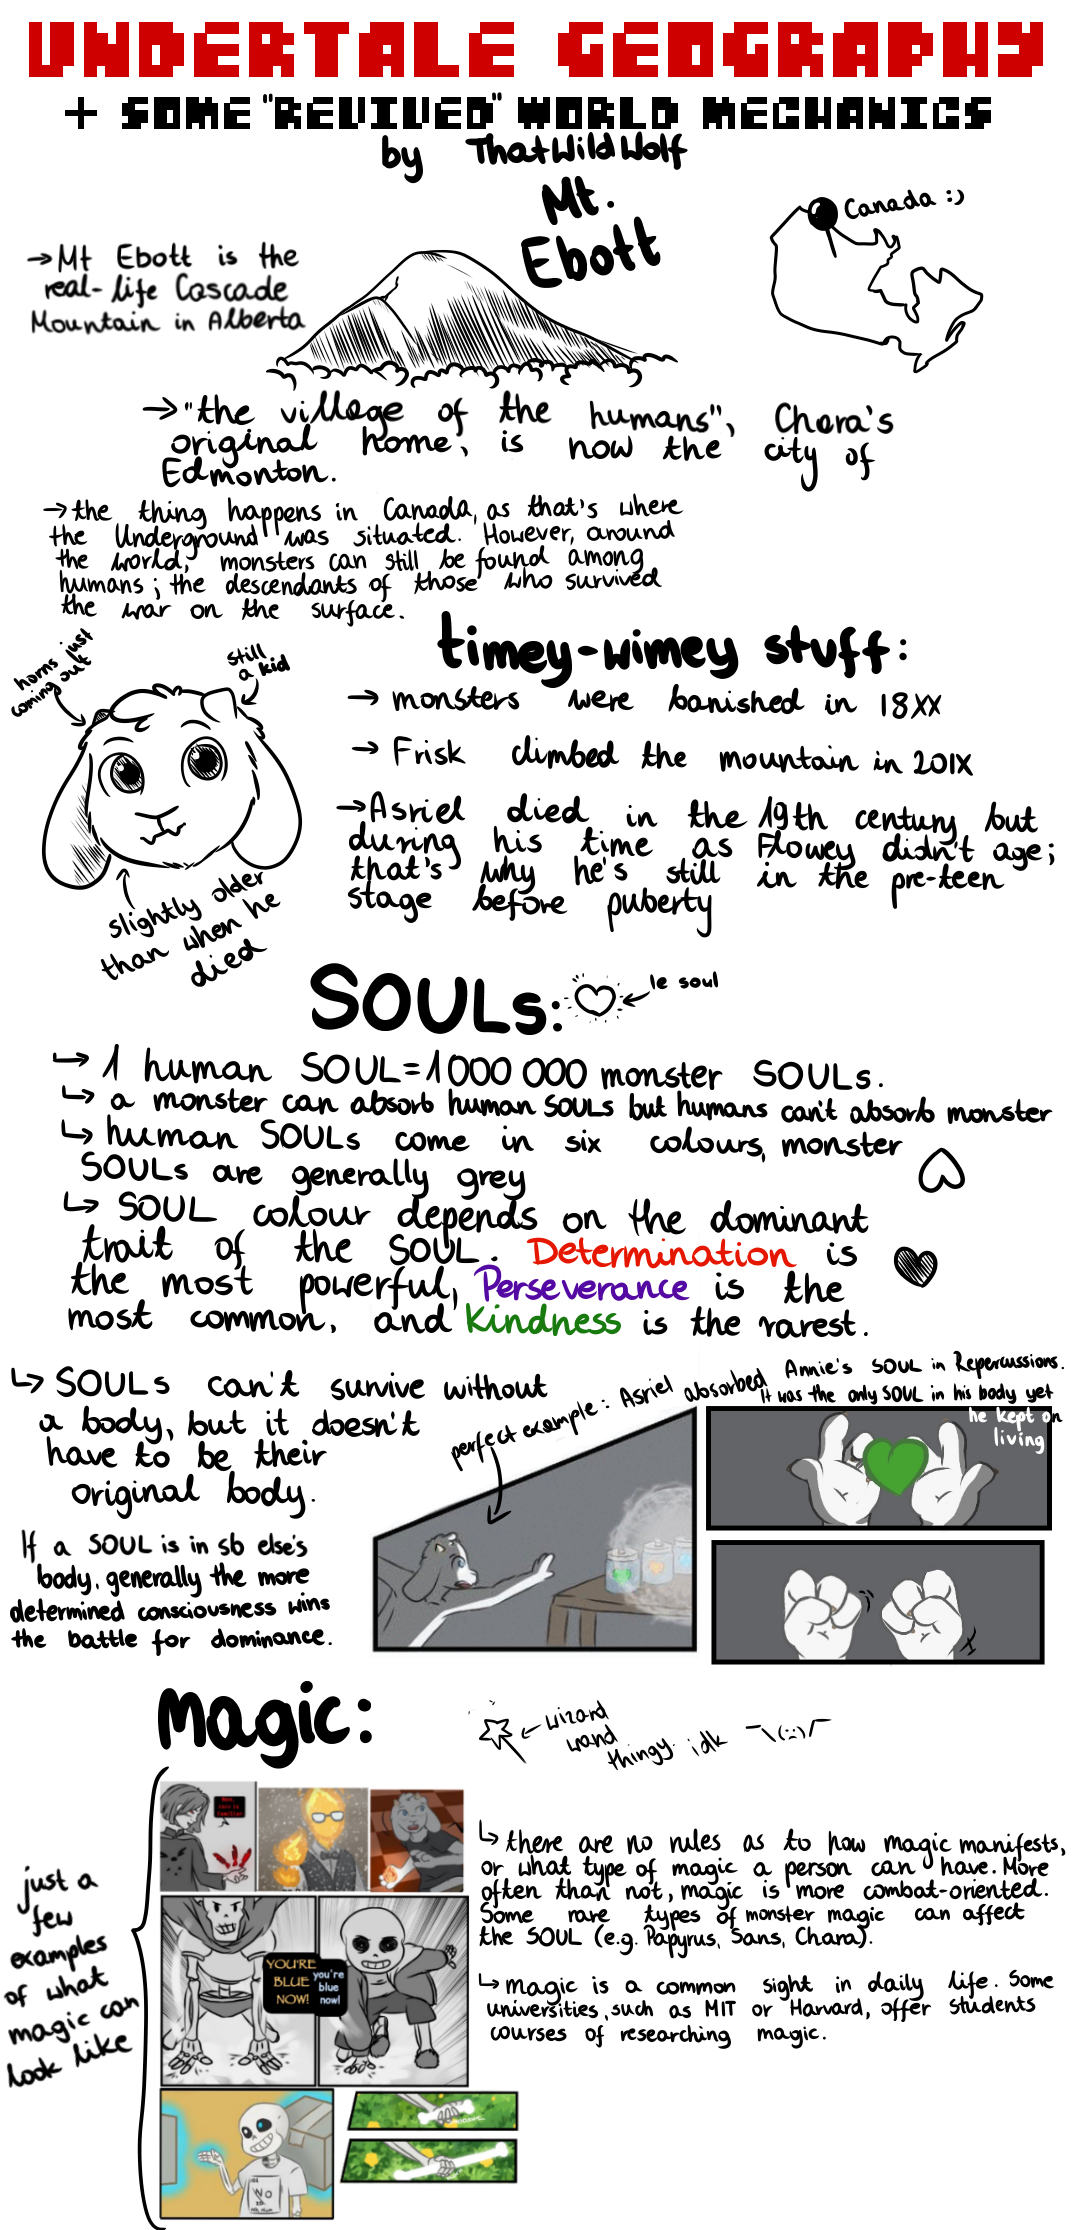 UNDERTALE GEOGRAPHY
+ SOME "REVIVED" WORLD MECHANICS
by ThatWildWolf
Mt.
Ebott
Canada :)
→Mt Ebott is the
real-life Cascade
Mountain in Alberta
→"the village of the humans", Chara's
original home, is now the city of
Edmonton.
→the thing happens in Canada, as that's where
the Underground was situated. However, around
the world, monsters can still be found among
humans; the descendants of those who survived
the war on the surface.
horns just
coming out
still
a kid
slightly older
than when he
died
timey-wimey stuff:
→ monsters were banished in 18XX
→ Frisk climbed the mountain in 201X
→Asriel died in the 19th century but
during his time as Flowey didn't age;
that's why he's still in the pre-teen
stage before puberty
SOULs:
le soul
↳ 1 human SOUL=1000 000 monster SOULs.
↳ a monster can absorb human SOULs but humans can't absorb monster
↳ human SOULs come in six colours, monster
SOULs are generally grey
↳ SOUL colour depends on the dominant
trait of the SOUL. Determination is
the most powerful, Perseverance is the
most common, and Kindness is the rarest.
↳ SOULs can't survive without
a body, but it doesn't
have to be their
original body.
If a SOUL is in sb else's
body, generally the more
determined consciousness wins
the battle for dominance.
perfect example: Asriel absorbed
Annie's SOUL in Repercussions.
It was the only SOUL in his body yet
he kept on
living
Magic:
wizard
wand
thingy idk ¯\(:))/¯
just a
few
examples
of what
magic can
look like
YOU'RE
BLUE
NOW!
you're
blue
now!
↳ there are no rules as to how magic manifests,
or what type of magic a person can have. More
often than not, magic is more combat-oriented.
Some rare types of monster magic can affect
the SOUL (e.g. Papyrus, Sans, Chara).
↳ magic is a common sight in daily life. Some
universities, such as MIT or Harvard, offer students
courses of researching magic.